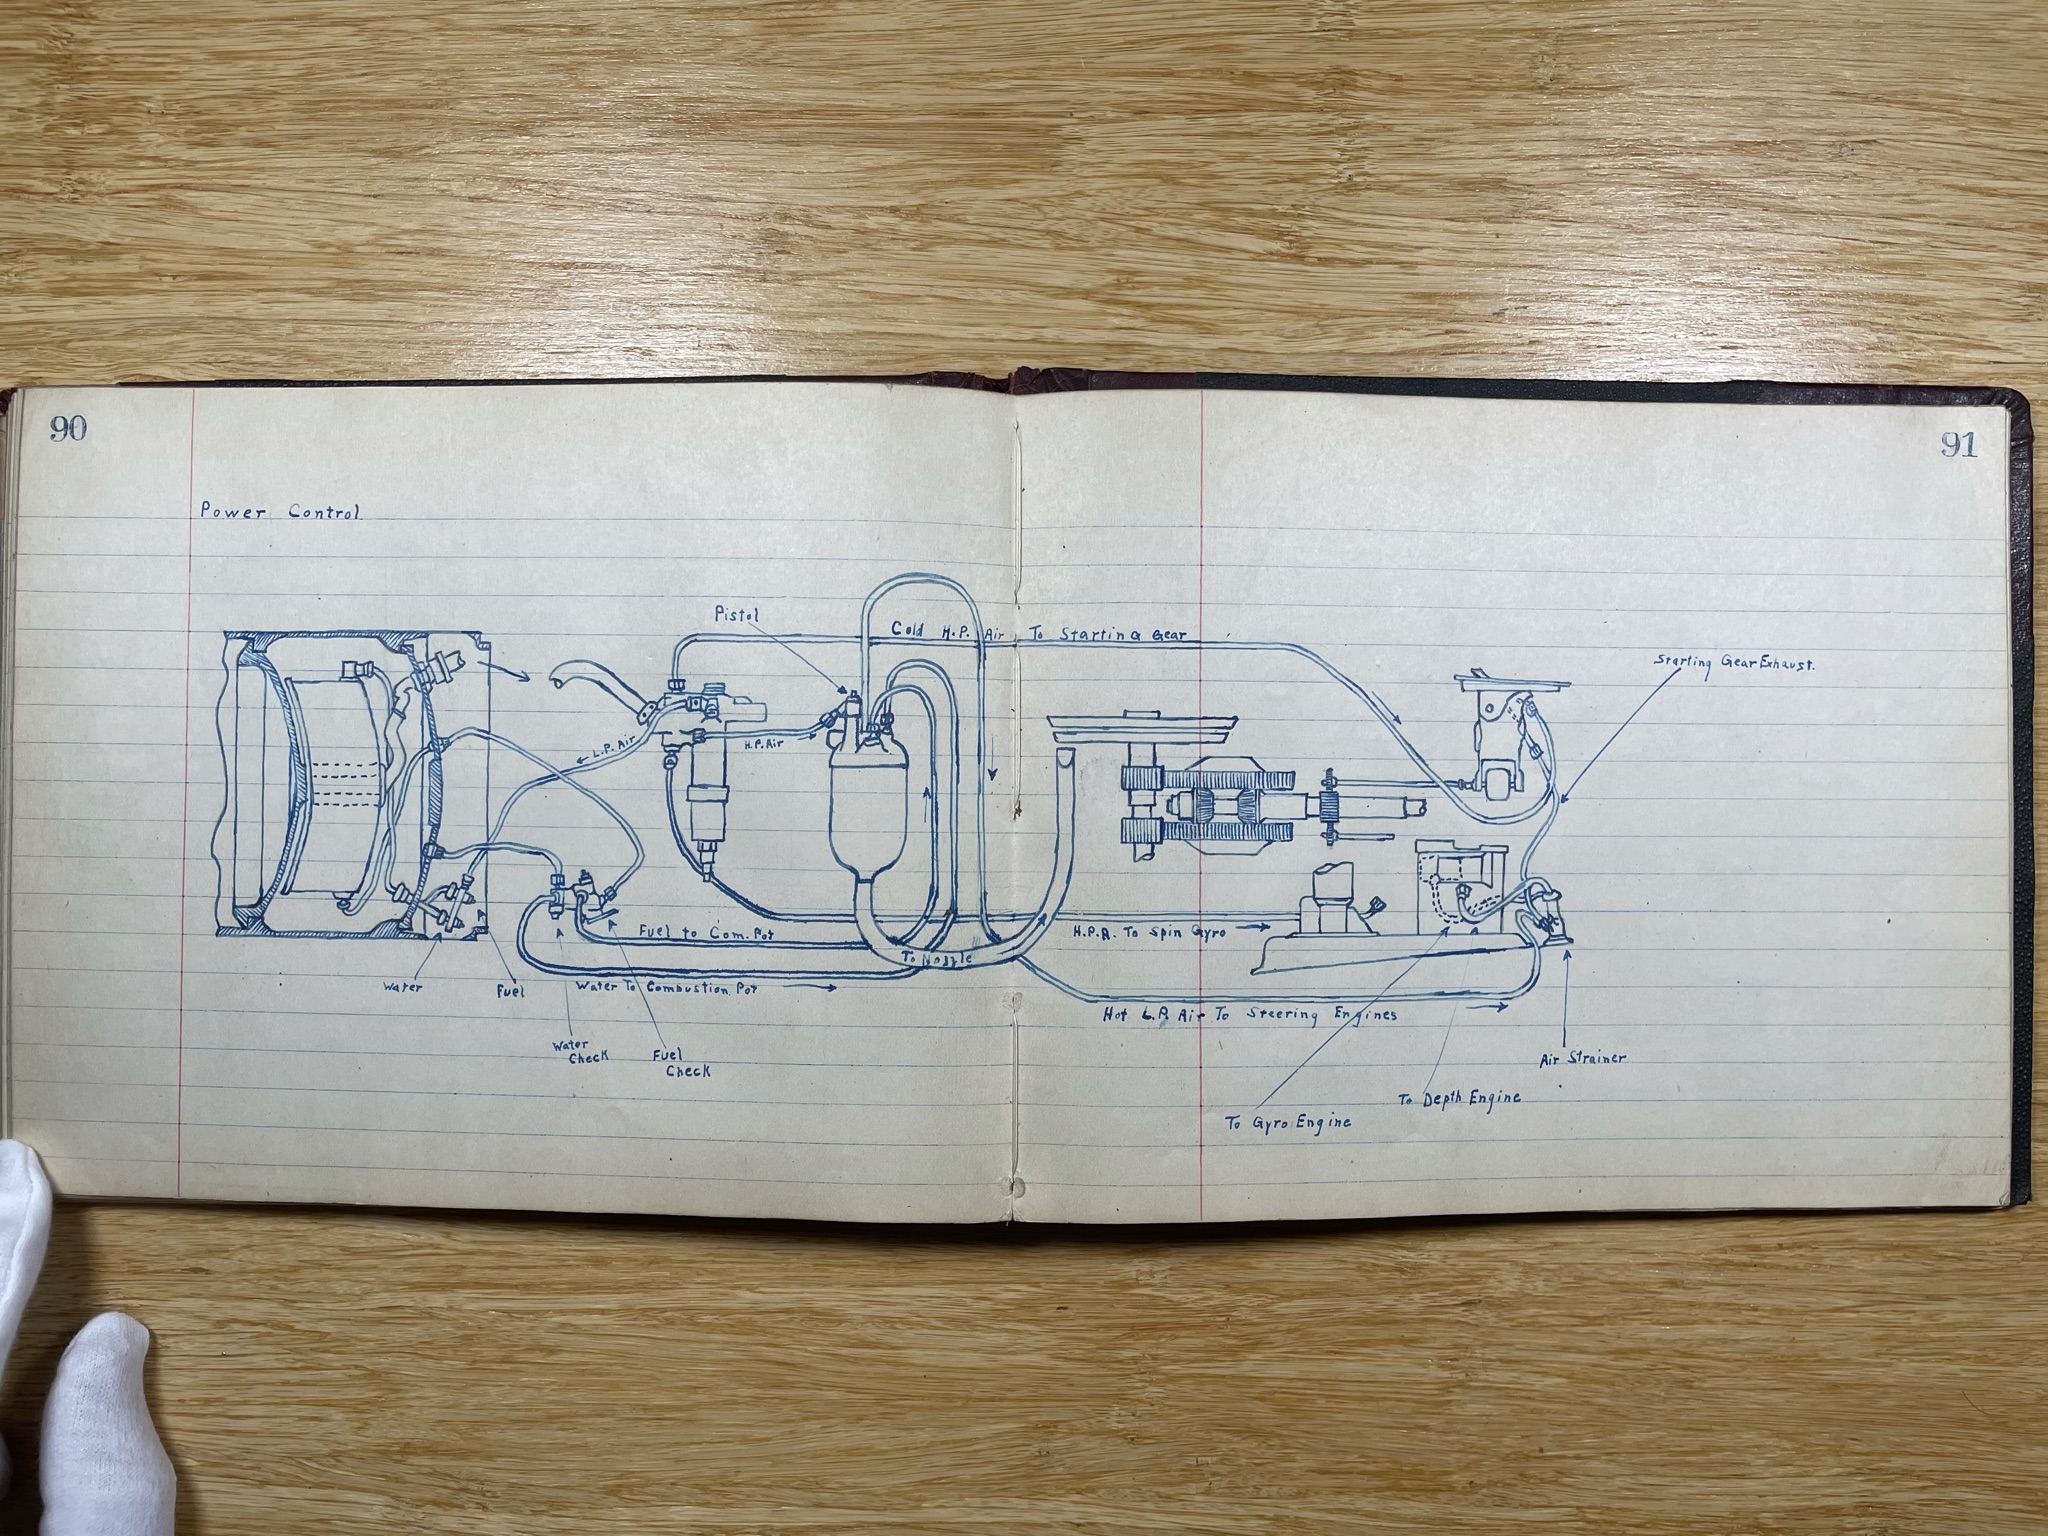 90
91
Power Control
Pistol
Cold H.P. Air To Starting Gear
Starting Gear Exhaust.
L.P. Air
H.P. Air
Fuel to Com. Pot
H.P.A. To Spin Gyro
To Nozzle
Water
Fuel
Water To Combustion Pot
Hot L.P. Air To Steering Engines
Water
Check
Fuel
Check
Air Strainer
To Depth Engine
To Gyro Engine